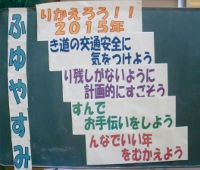 ふゆやすみ
りかえろう!!
2015年
き道の交通安全に
気をつけよう
り残しがないように
計画的にすごそう
すんで
お手伝いをしよう
んなでいい年
をむかえよう